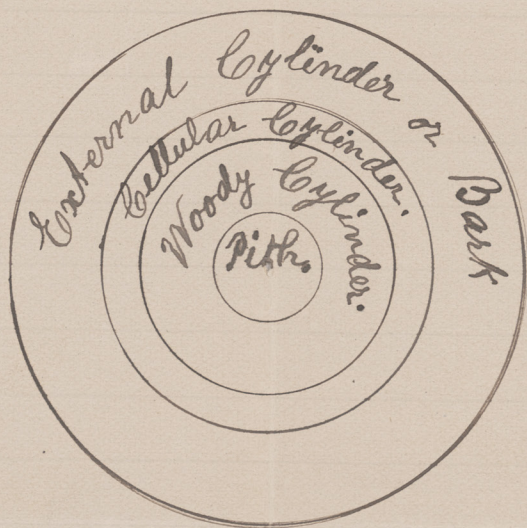 External Cylinder or Bark
Cellular Cylinder.
Woody Cylinder.
Pith.